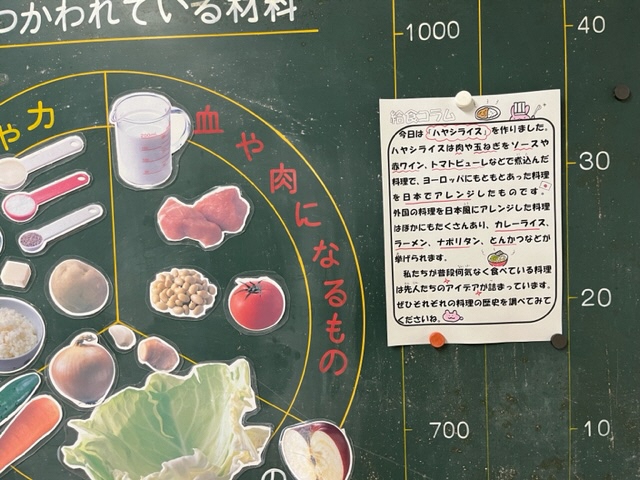 つかわれている材料
や力
血や肉になるもの
の
1000
700
40
30
20
10
給食コラム
今日は「ハヤシライス」を作りました。
ハヤシライスは肉や玉ねぎをソースや
赤ワイン、トマトピューレなどで煮込んだ
料理で、ヨーロッパにもともとあった料理
を日本でアレンジしたものです。
外国の料理を日本風にアレンジした料理
はほかにもたくさんあり、カレーライス、
ラーメン、ナポリタン、とんかつなどが
挙げられます。
私たちが普段何気なく食べている料理
は先人たちのアイデアが詰まっています。
ぜひそれぞれの料理の歴史を調べてみて
くださいね。